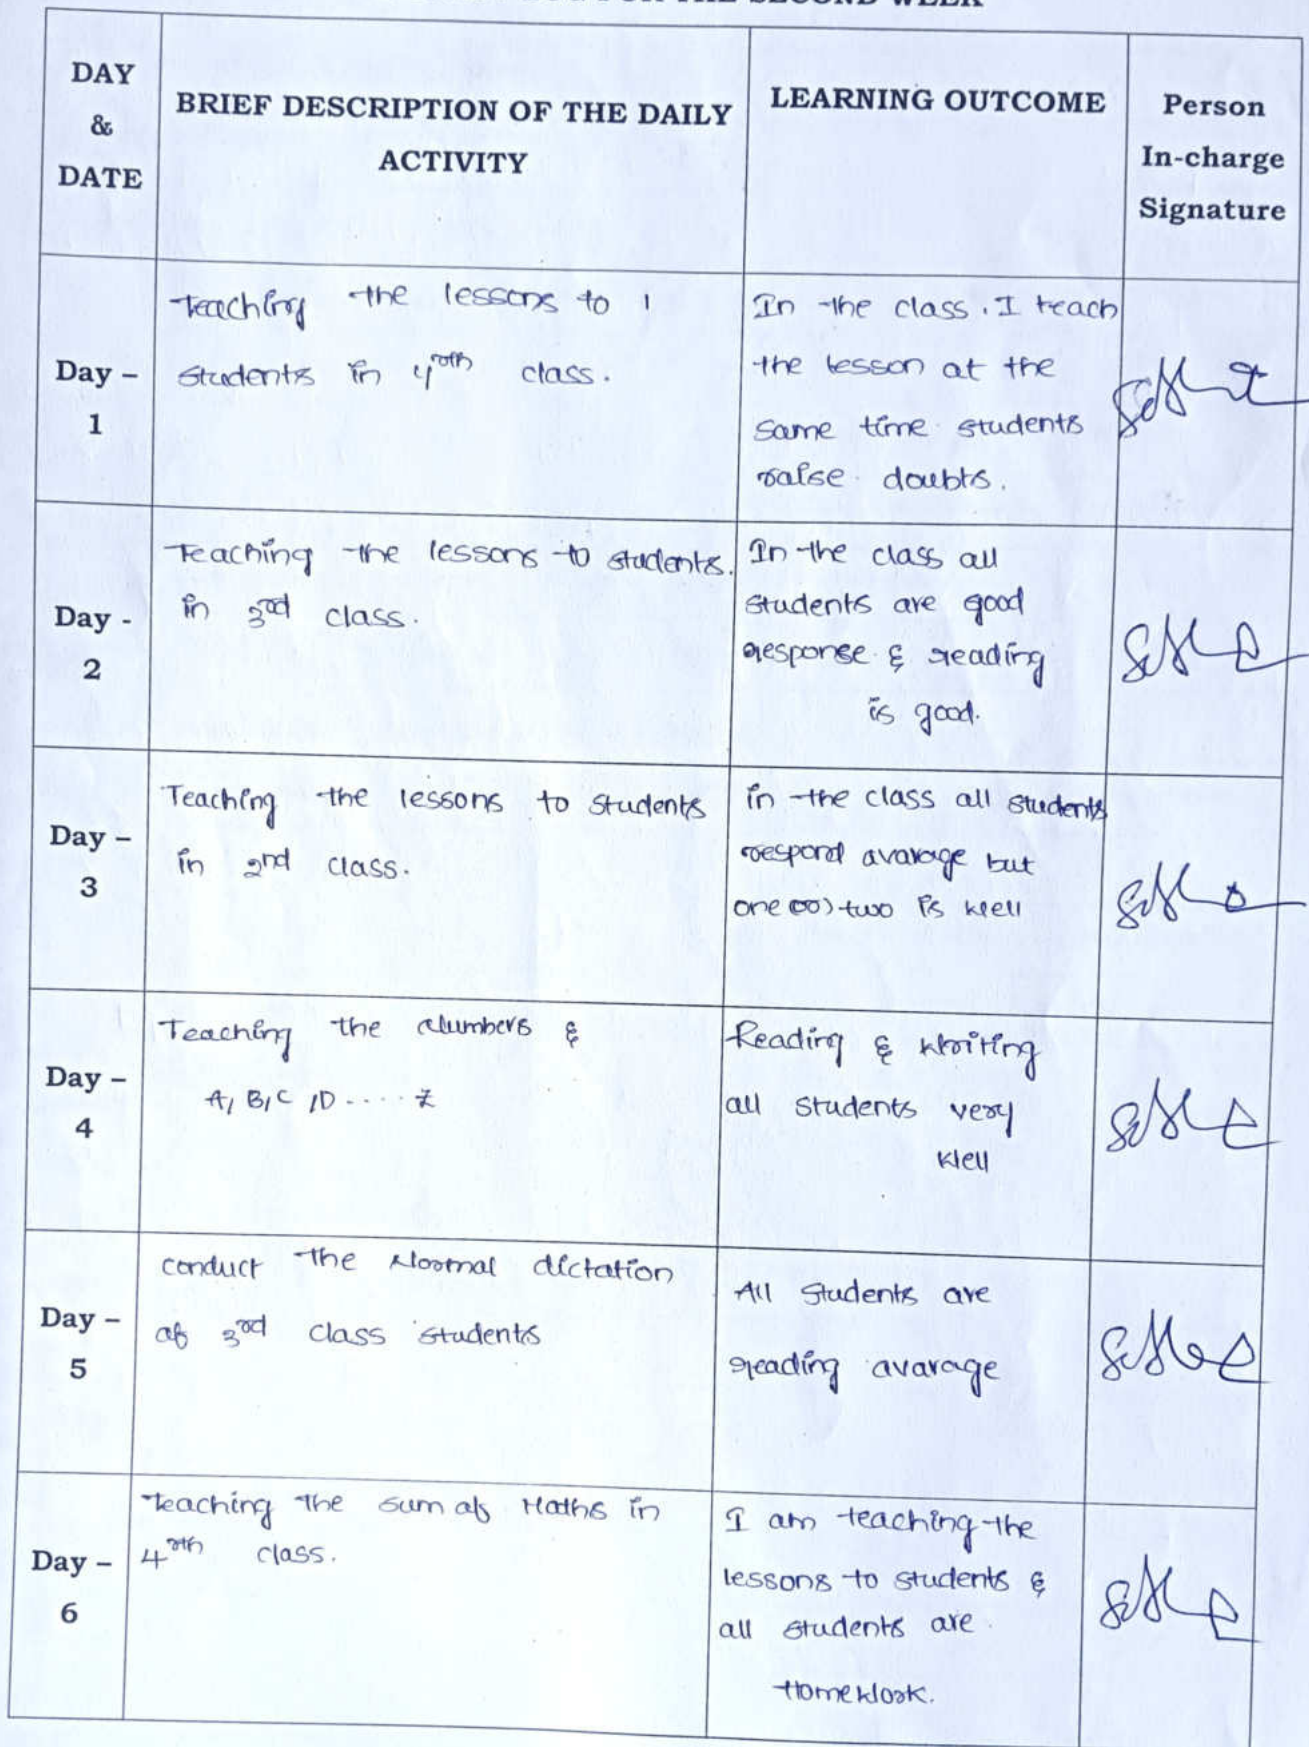 FOR THE SECOND WEEK
DAY & DATE
BRIEF DESCRIPTION OF THE DAILY
ACTIVITY
LEARNING OUTCOME
Person
In-charge
Signature
Day – 1
Teaching the lessons to
students in 4th class.
In the class. I teach
the lesson at the
same time students
raise doubts.
Day - 2
Teaching the lessons to students.
in 3rd class.
In the class all
students are good
response & reading
is good.
Day – 3
Teaching the lessons to students
in 2nd class.
in the class all students
respond avarage but
one (or) two is well
Day – 4
Teaching the Numbers &
A, B, C, D .... Z
Reading & writing
all students very
well
Day – 5
conduct the Normal dictation
of 3rd class students
All students are
reading avarage
Day – 6
teaching the sum of Maths in
4th class.
I am teaching the
lessons to students &
all students are
Homework.